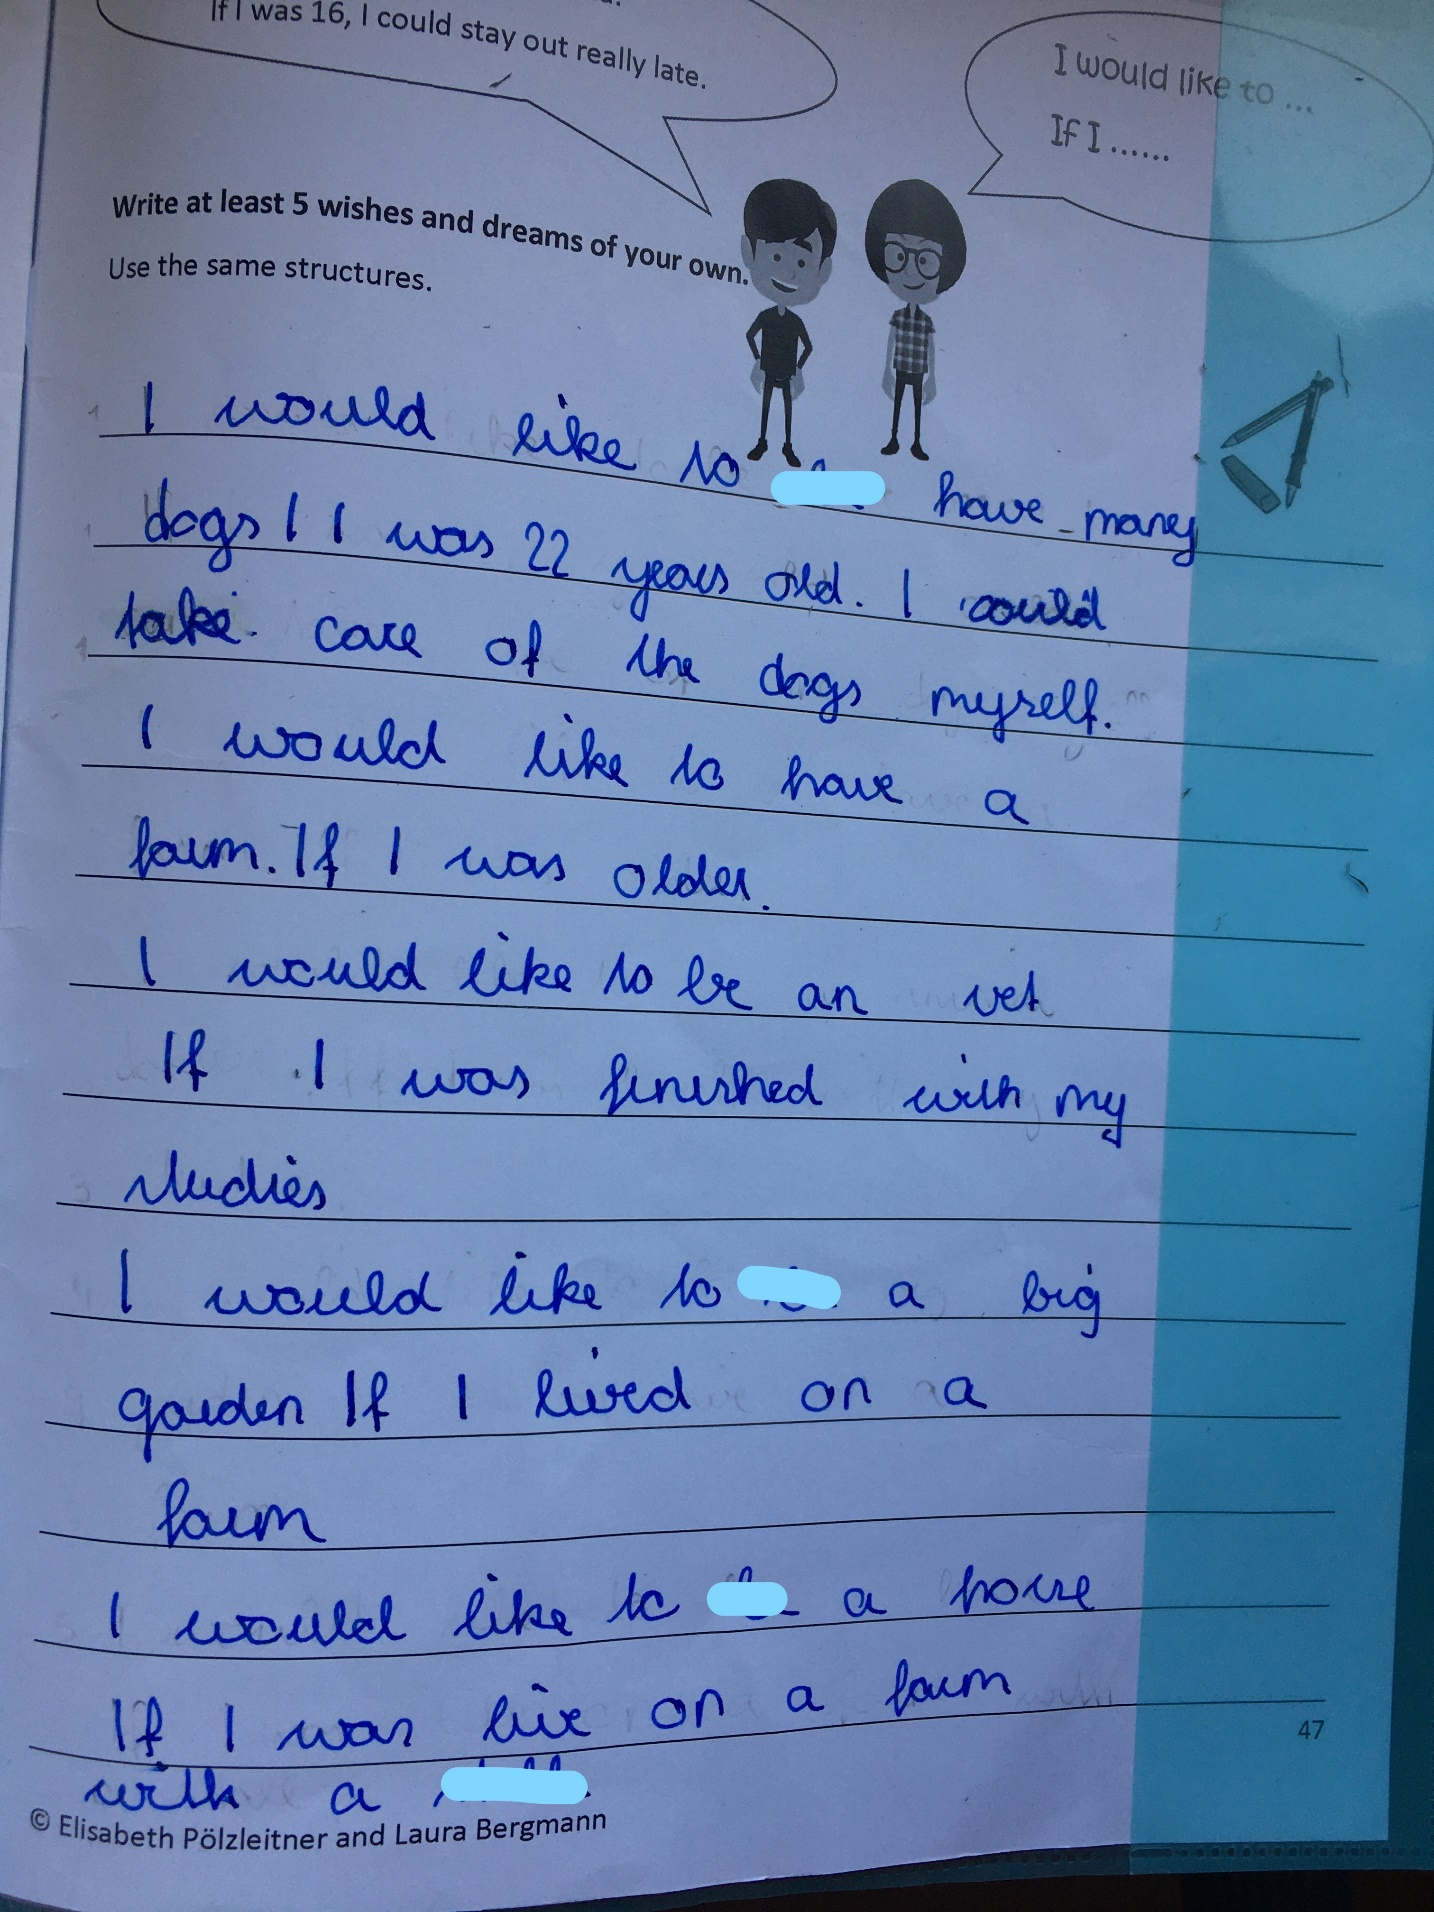 If I was 16, I could stay out really late.
I would like to ...
If I ......
Write at least 5 wishes and dreams of your own.
Use the same structures.
I would like to have many
dogs I I was 22 years old. I could
take care of the dogs myself.
I would like to have a
farm. If I was older.
I would like to be an vet
If I was finished with my
studies
I would like to a big
garden If I lived on a
farm
I would like to a horse
If I was live on a farm
with a
47
© Elisabeth Pölzleitner and Laura Bergmann